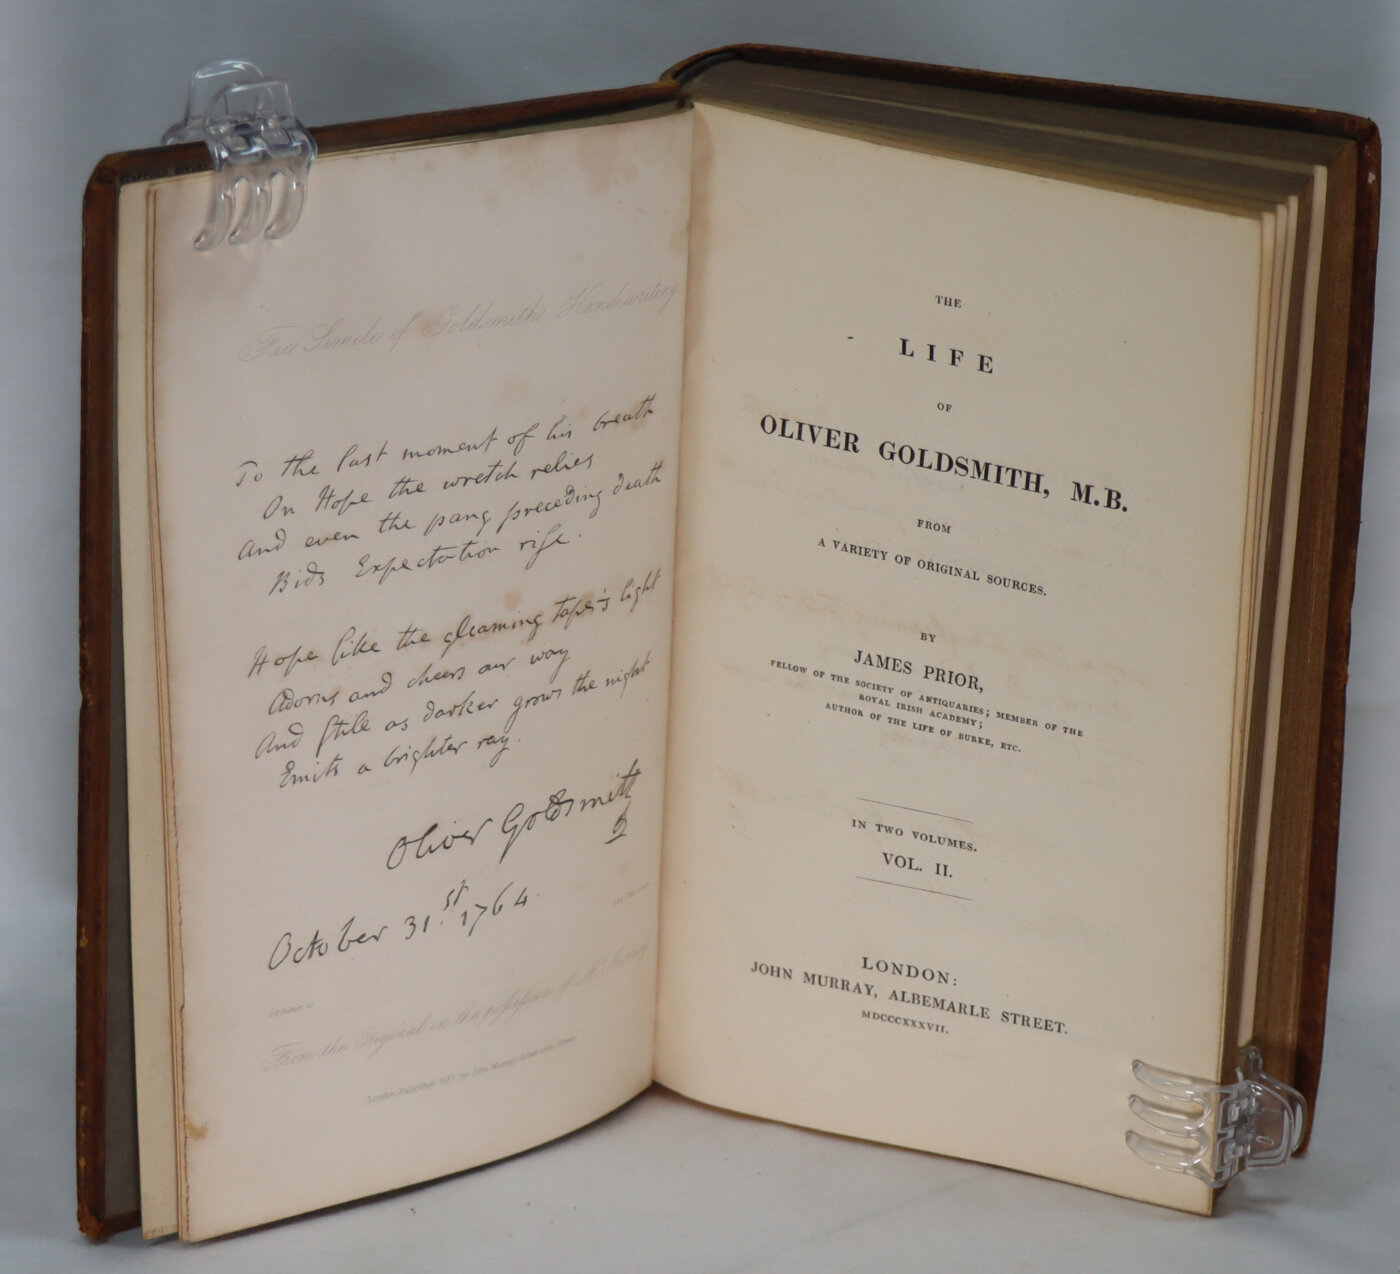 STAFFORD, BINDER
Fac Simile of Goldsmith's Hand-writing
To the last moment of his breath
On Hope the wretch relies
And even the pang preceding death
Bids Expectation rise.
Hope like the gleaming taper's light
Adorns and cheers our way
And still as darker grows the night
Emits a brighter ray.
Oliver Goldsmith
October 31.st 1764.
From the Original in the possession of Mr. Murray
London, Published 1837, by John Murray, Albemarle Street.
THE
LIFE
OF
OLIVER GOLDSMITH, M.B.
FROM
A VARIETY OF ORIGINAL SOURCES.
BY
JAMES PRIOR,
FELLOW OF THE SOCIETY OF ANTIQUARIES; MEMBER OF THE
ROYAL IRISH ACADEMY;
AUTHOR OF THE LIFE OF BURKE, ETC.
IN TWO VOLUMES.
VOL. II.
LONDON:
JOHN MURRAY, ALBEMARLE STREET.
MDCCCXXXVII.